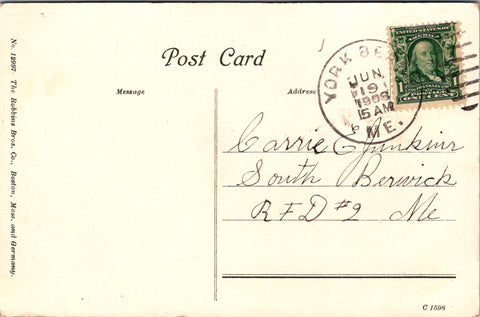 Post Card
Message
Address
No. 12897 The Robbins Bros. Co., Boston, Mass. and Germany.
YORK BE
JUN
19
1908
5 AM
ME.
UNITED STATES OF
AMERICA
1
ONE CENT
Carrie Junkins
South Berwick
R F D #2 Me
C 1598